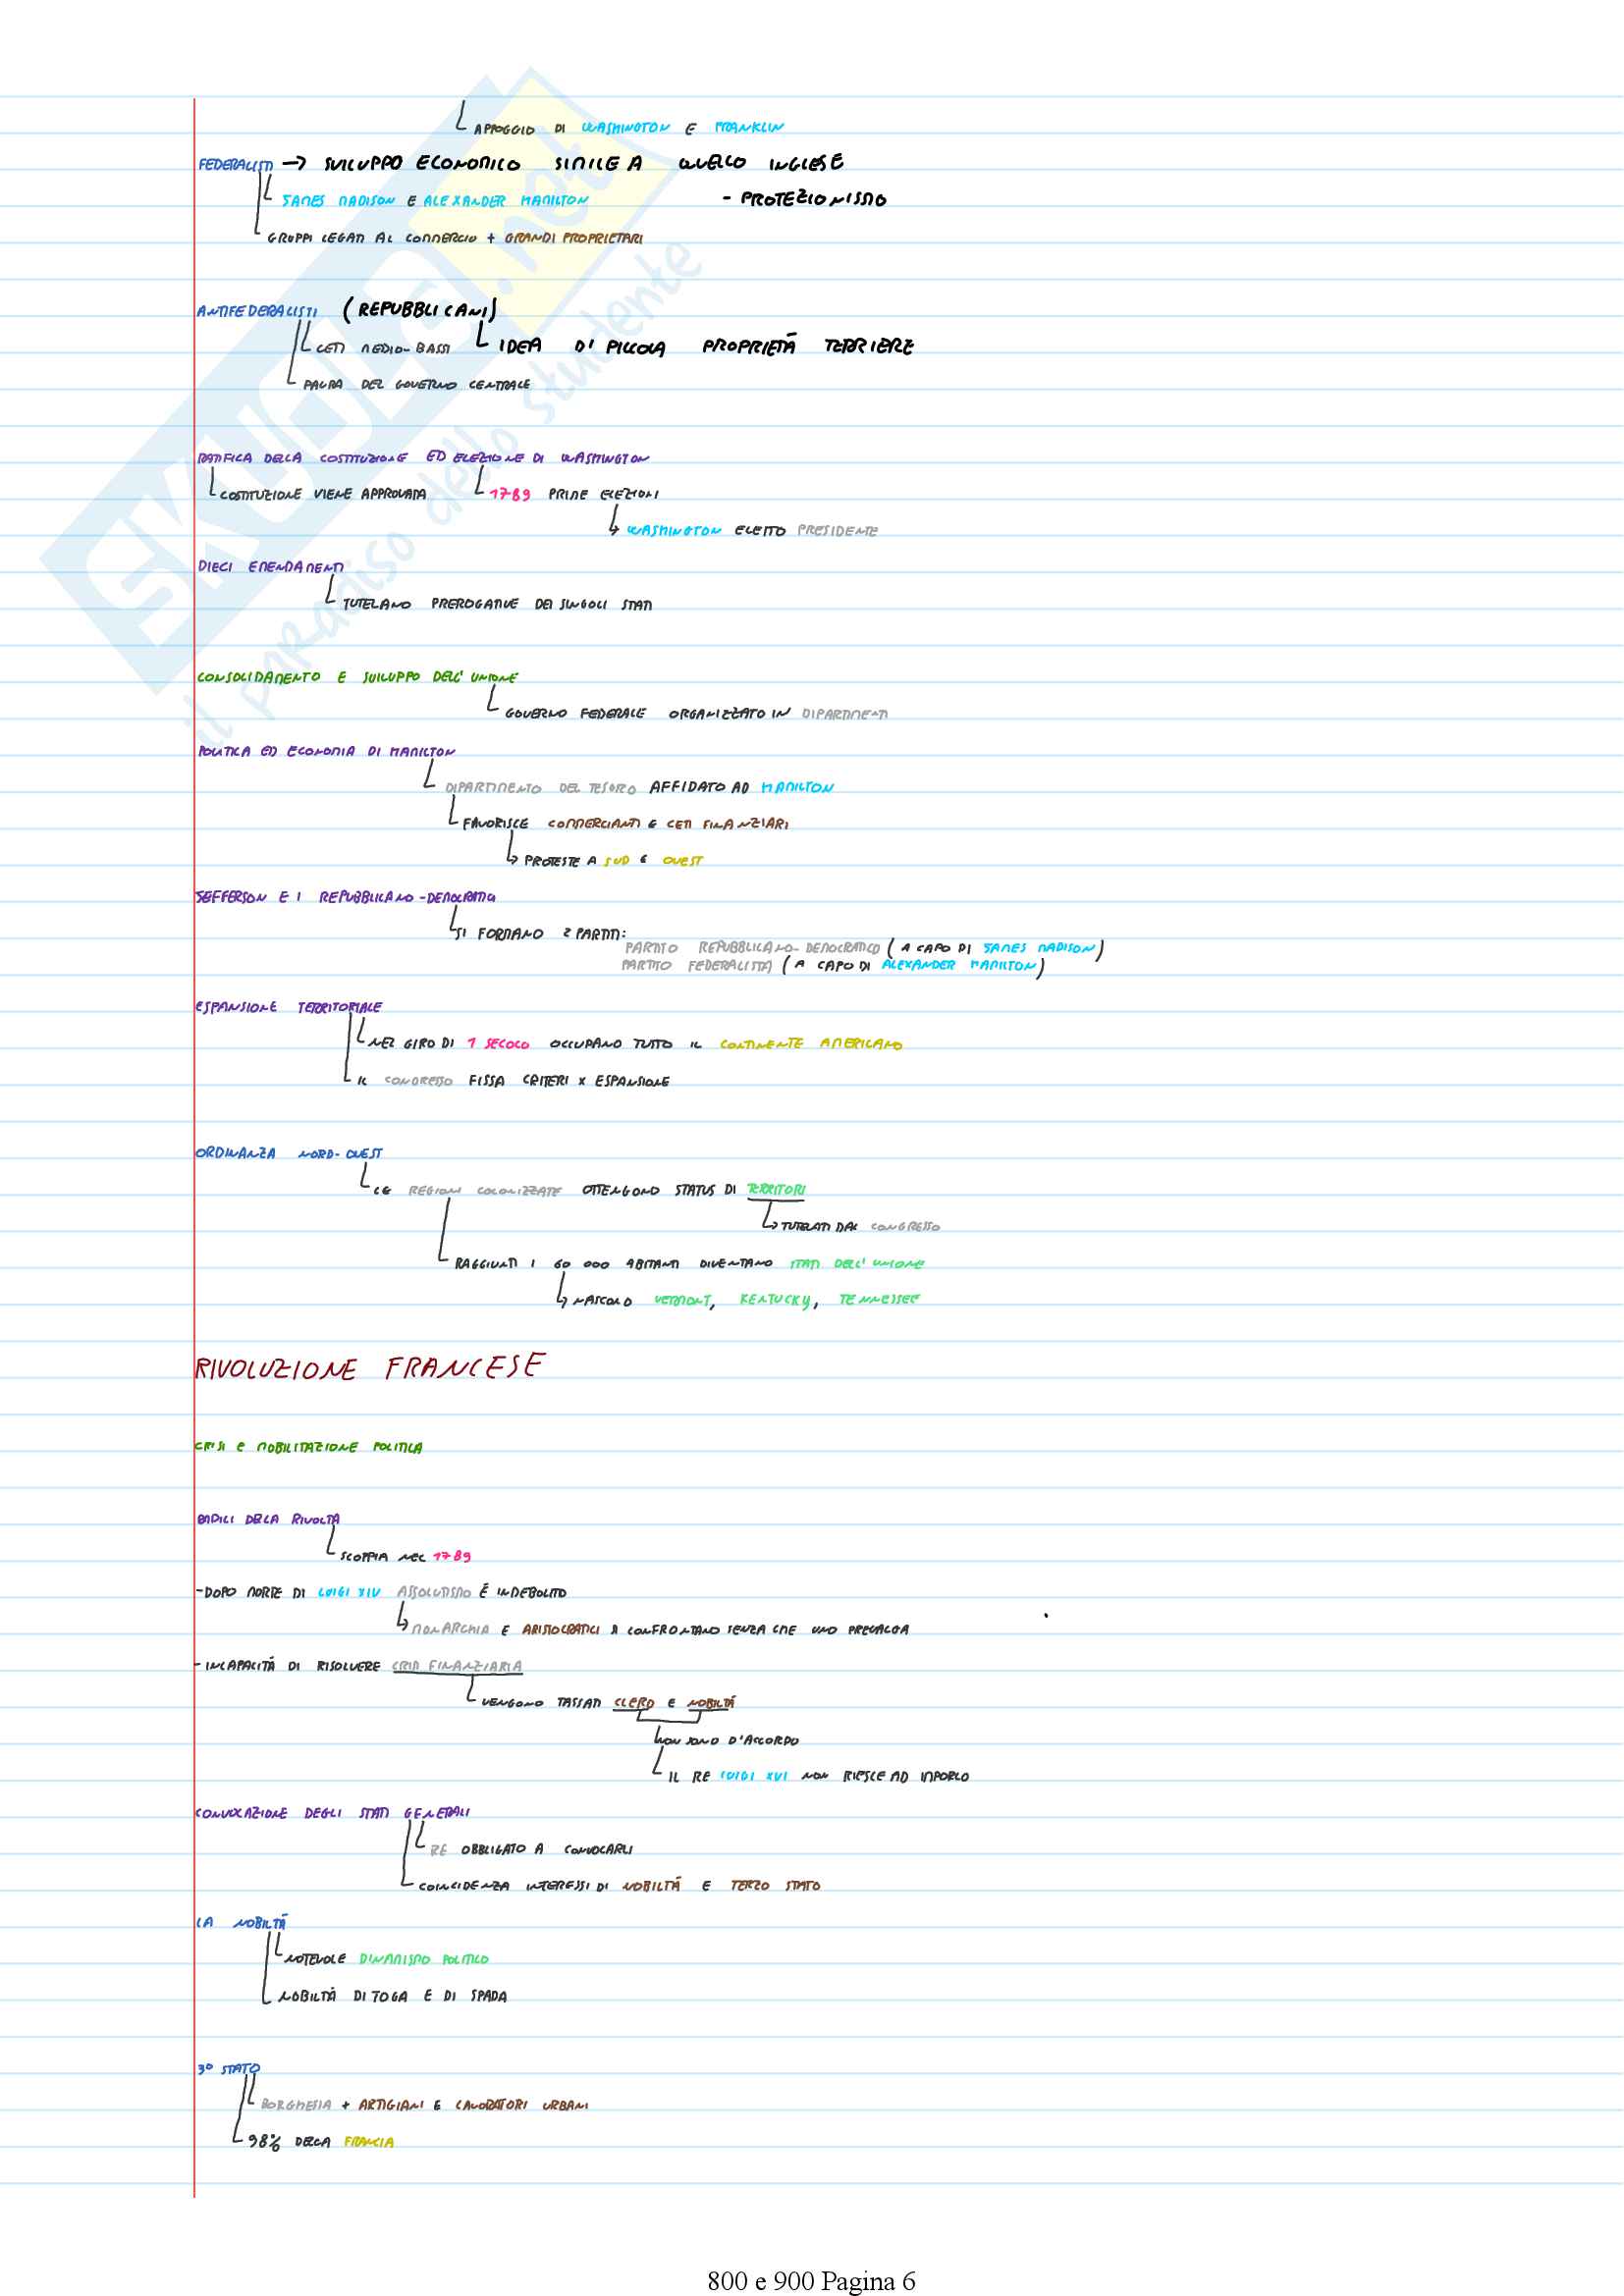 APPOGGIO DI WASHINGTON E FRANKLIN
FEDERALISTI → SVILUPPO ECONOMICO SIMILE A QUELLO INGLESE
JAMES MADISON E ALEXANDER HAMILTON - PROTEZIONISMO
GRUPPI LEGATI AL COMMERCIO + GRANDI PROPRIETARI
ANTIFEDERALISTI (REPUBBLICANI)
CETI MEDIO-BASSI IDEA DI PICCOLA PROPRIETÀ TERRIERE
PAURA DEL GOVERNO CENTRALE
RATIFICA DELLA COSTITUZIONE ED ELEZIONE DI WASHINGTON
COSTITUZIONE VIENE APPROVATA 1789 PRIME ELEZIONI
WASHINGTON ELETTO PRESIDENTE
DIECI EMENDAMENTI
TUTELANO PREROGATIVE DEI SINGOLI STATI
CONSOLIDAMENTO E SVILUPPO DELL'UNIONE
GOVERNO FEDERALE ORGANIZZATO IN DIPARTIMENTI
POLITICA ED ECONOMIA DI HAMILTON
DIPARTIMENTO DEL TESORO AFFIDATO AD HAMILTON
FAVORISCE COMMERCIANTI E CETI FINANZIARI
PROTESTE A SUD E OVEST
JEFFERSON E I REPUBBLICANO-DEMOCRATICI
SI FORMANO 2 PARTITI:
PARTITO REPUBBLICANO-DEMOCRATICO (A CAPO DI JAMES MADISON)
PARTITO FEDERALISTA (A CAPO DI ALEXANDER HAMILTON)
ESPANSIONE TERRITORIALE
NEL GIRO DI 1 SECOLO OCCUPANO TUTTO IL CONTINENTE AMERICANO
IL CONGRESSO FISSA CRITERI X ESPANSIONE
ORDINANZA NORD-OVEST
LE REGIONI COLONIZZATE OTTENGONO STATUS DI TERRITORI
TUTELATI DAL CONGRESSO
RAGGIUNTI I 60 000 ABITANTI DIVENTANO STATI DELL'UNIONE
NASCONO VERMONT, KENTUCKY, TENNESSEE
RIVOLUZIONE FRANCESE
CRISI E MOBILITAZIONE POLITICA
RADICI DELLA RIVOLTA
SCOPPIA NEL 1789
-DOPO MORTE DI LUIGI XIV ASSOLUTISMO È INDEBOLITO
MONARCHIA E ARISTOCRATICI SI CONFRONTANO SENZA CHE UNO PREVALGA
- INCAPACITÀ DI RISOLVERE CRISI FINANZIARIA
VENGONO TASSATI CLERO E NOBILTÀ
NON SONO D'ACCORDO
IL RE LUIGI XVI NON RIESCE AD IMPORLO
CONVOCAZIONE DEGLI STATI GENERALI
RE OBBLIGATO A CONVOCARLI
COINCIDENZA INTERESSI DI NOBILTÀ E TERZO STATO
LA NOBILTÀ
NOTEVOLE DINAMISMO POLITICO
NOBILTÀ DI TOGA E DI SPADA
3° STATO
BORGHESIA + ARTIGIANI E LAVORATORI URBANI
98% DELLA FRANCIA
800 e 900 Pagina 6
SKUOLA.net
il paradiso dello studente